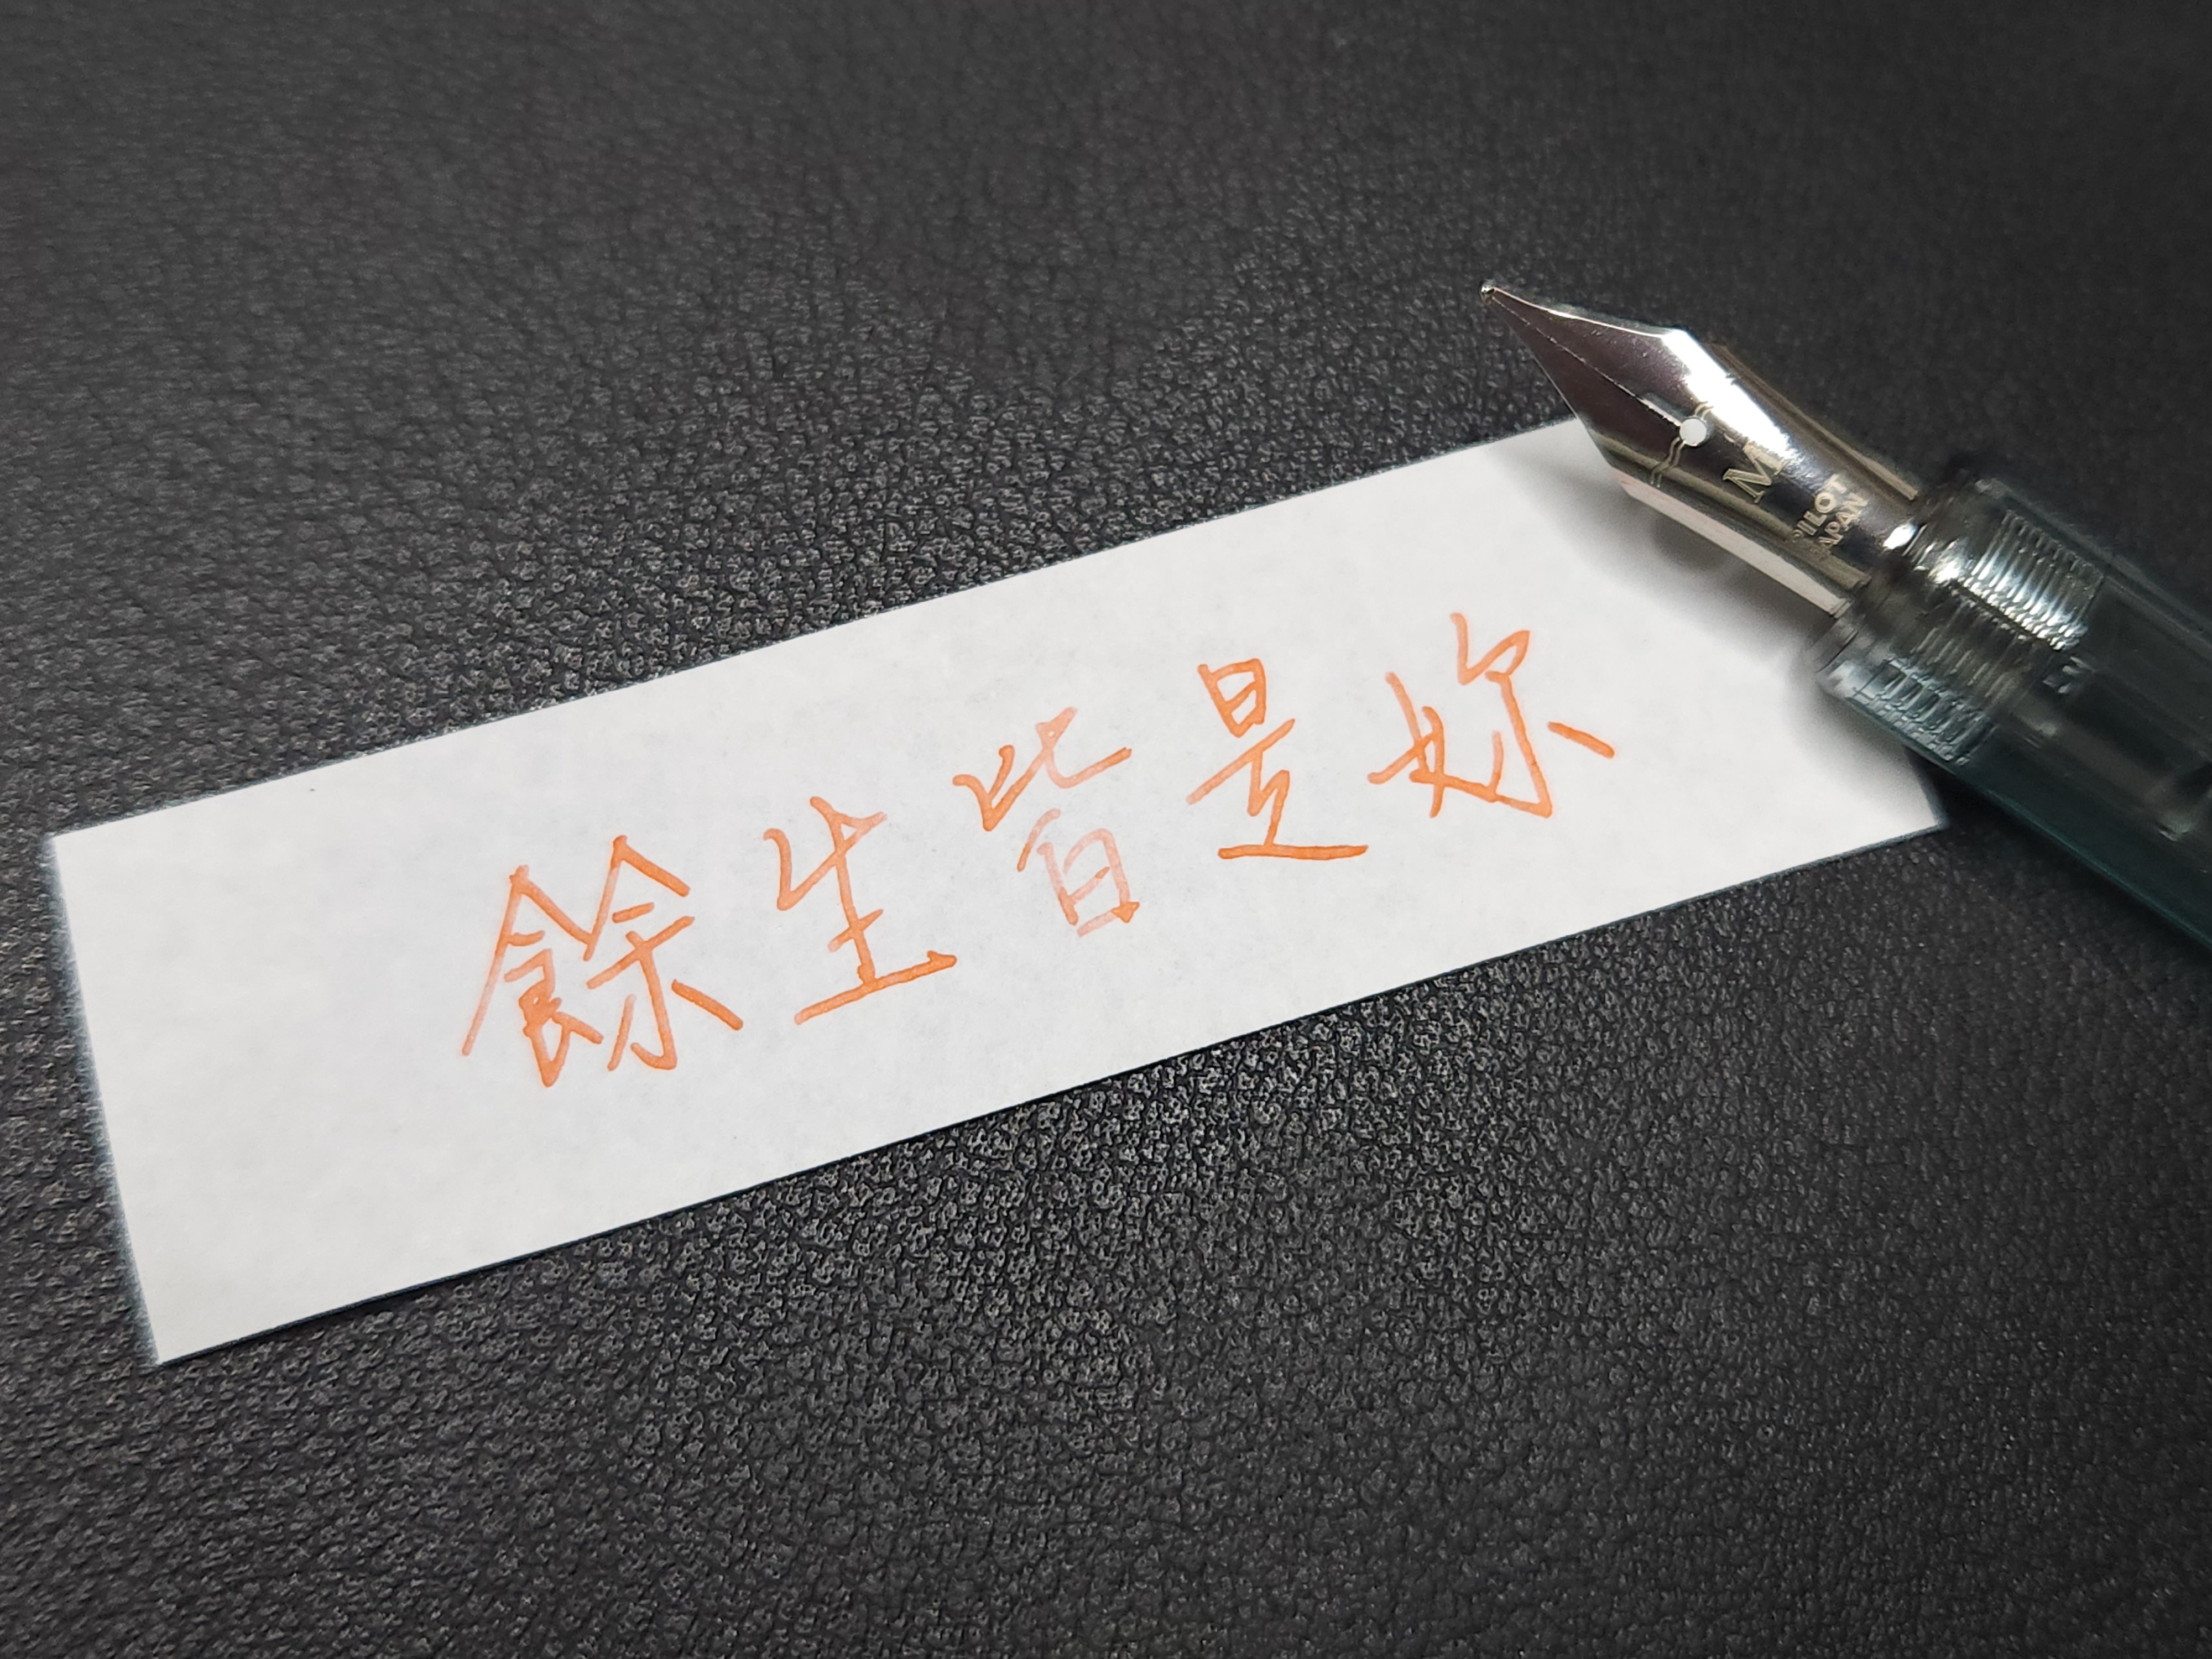 餘生皆是妳
M
PILOT
JAPAN